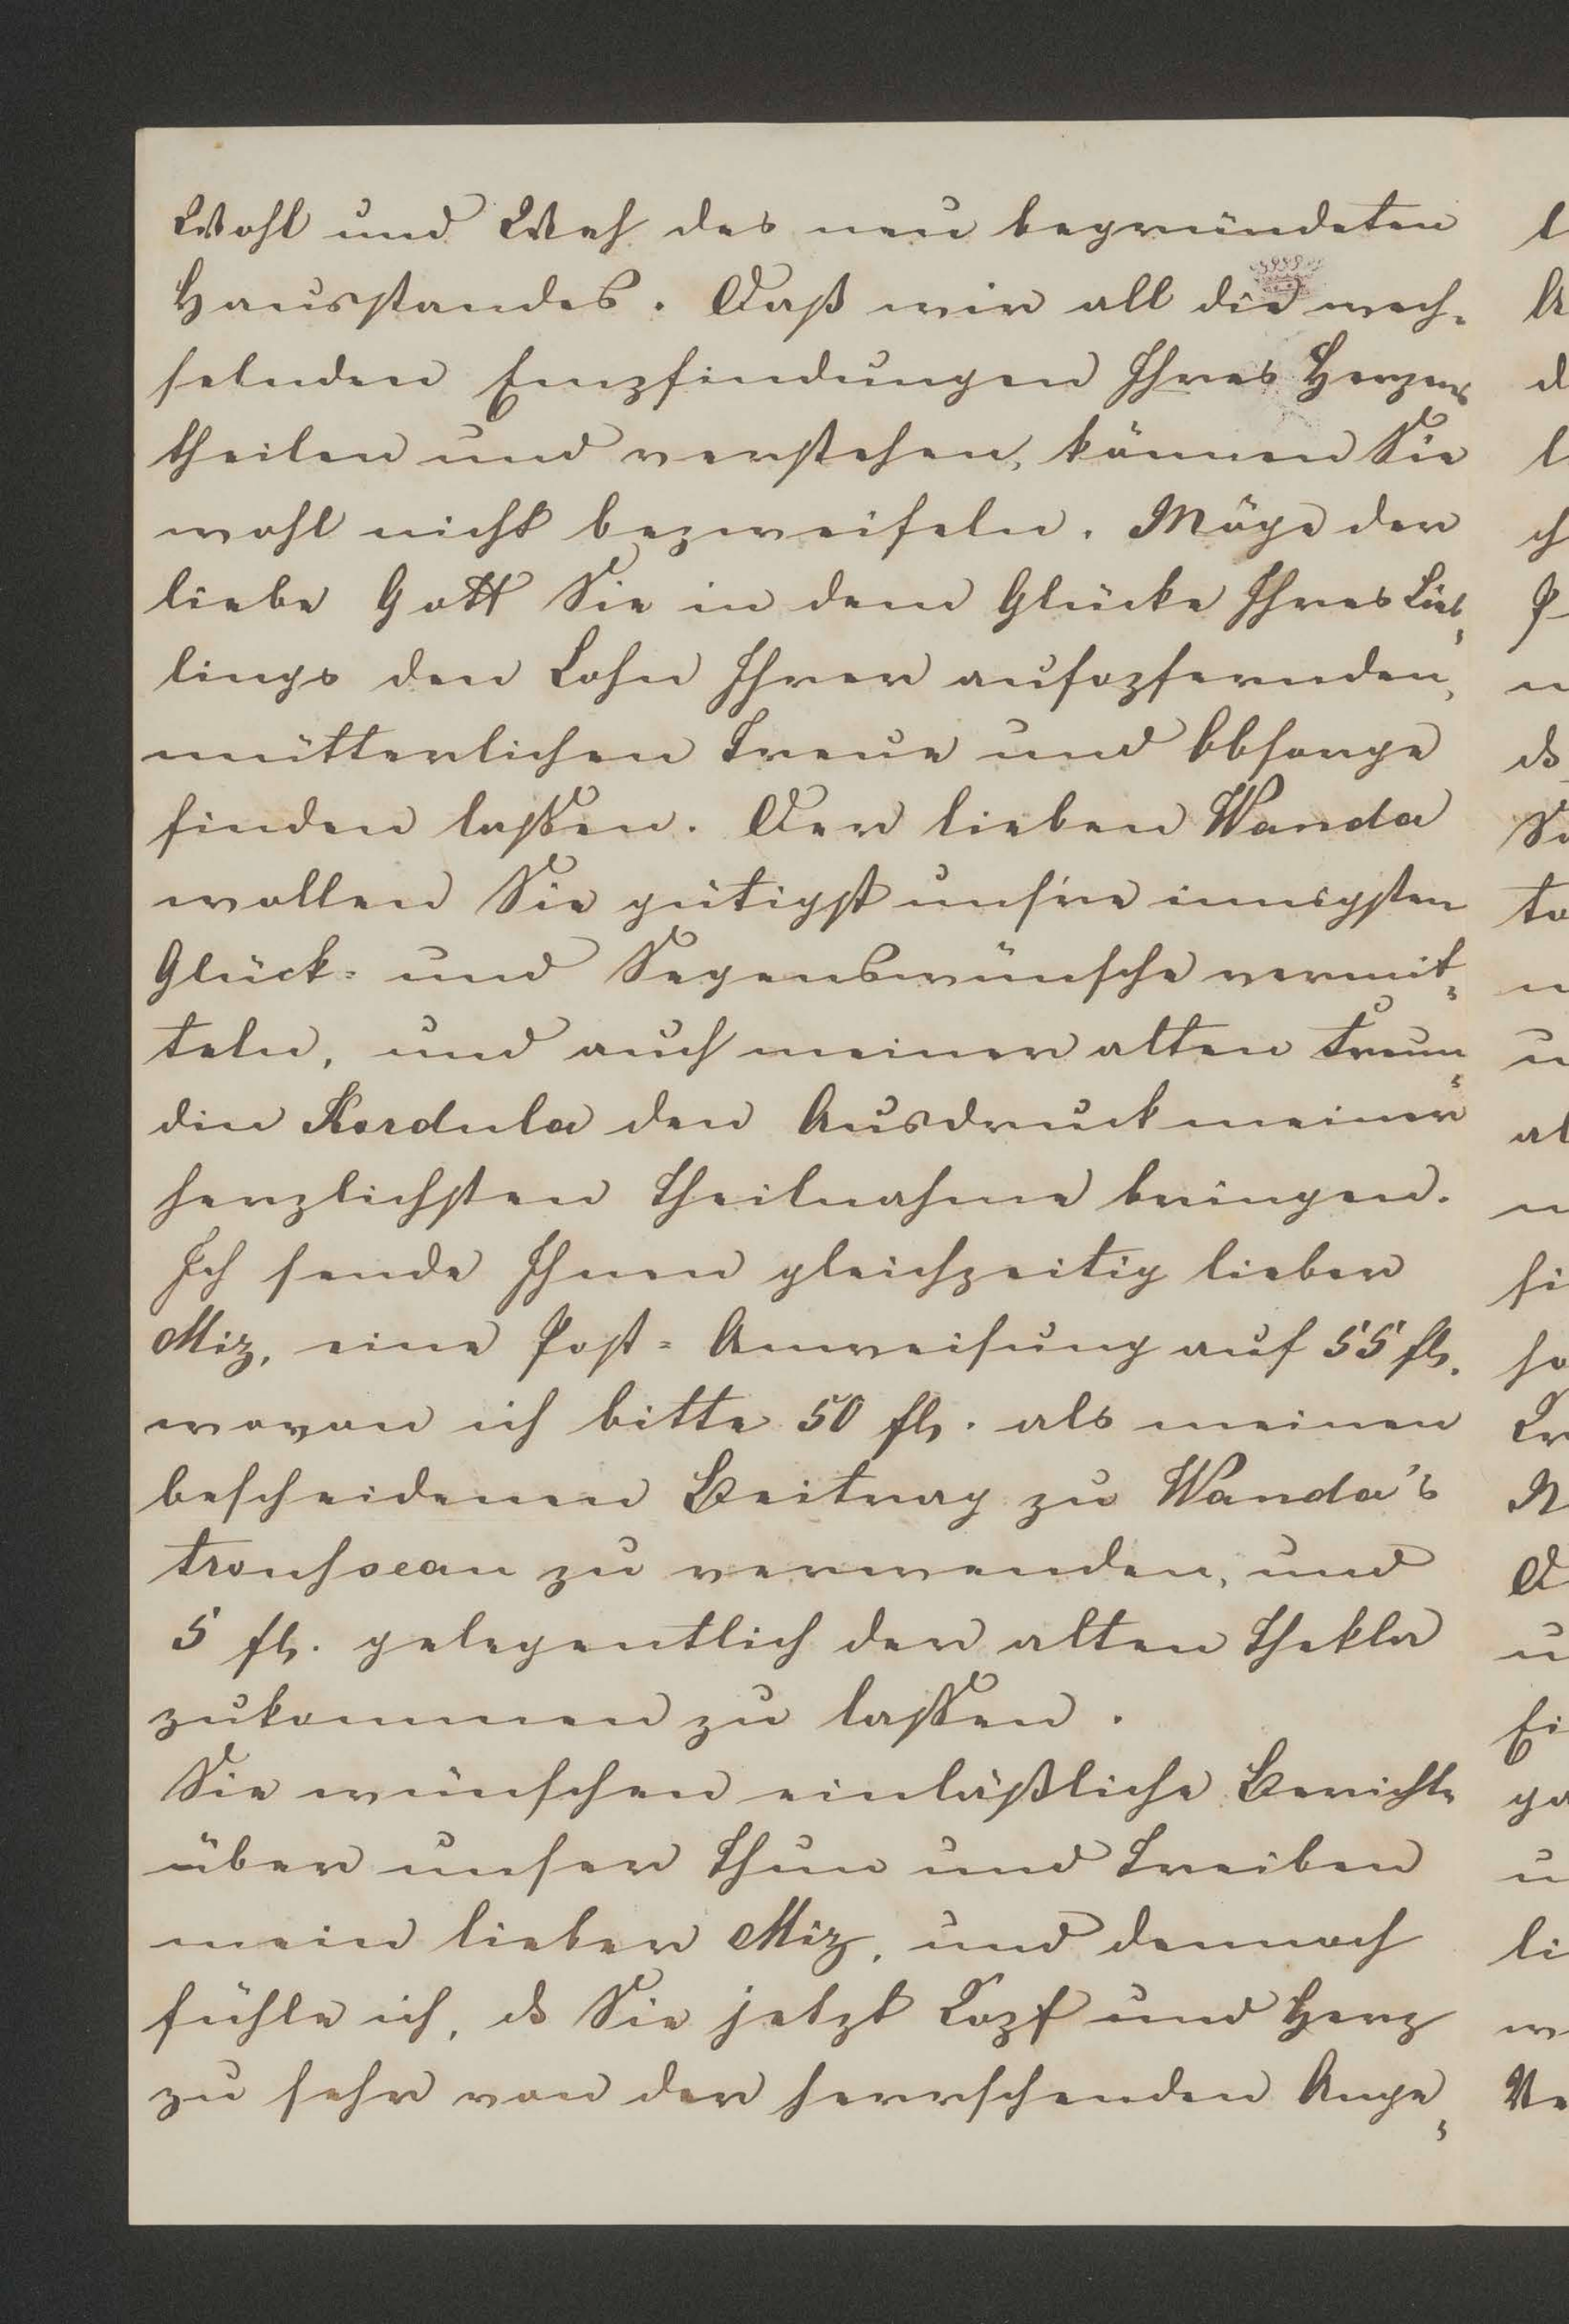 Wohl und Weh des neu begründeten
Hausstandes. Daß wir all die wech=
selnden Empfindungen Ihres Herzens
theilen und verstehen, können Sie
wohl nicht bezweifeln. Möge der
liebe Gott Sie in dem Glücke Ihres Lieb=
lings den Lohn Ihrer aufopfernden,
mütterlichen Treue und Obsorge
finden lassen. Der lieben Wanda
wollen Sie gütigst uns're innigsten
Glück= und Segenswünsche vermit=
teln, und auch meiner alten Freun=
din Kordula den Ausdruck meiner
herzlichsten Theilnahme bringen.
Ich sende Ihnen gleichzeitig lieber
Miz, eine Post=Anweisung auf 55 fl.
wovon ich bitte 50 fl. als meinen
bescheidenen Beitrag zu Wanda's
trousseau zu verwenden, und
5 fl. gelegentlich der alten Thekla
zukommen zu lassen.
Sie wünschen einläßliche Berichte
über unser Thun und Treiben
mein lieber Miz, und dennoch
fühle ich, ds Sie jetzt Kopf und Herz
zu sehr von der herrschenden Ange=